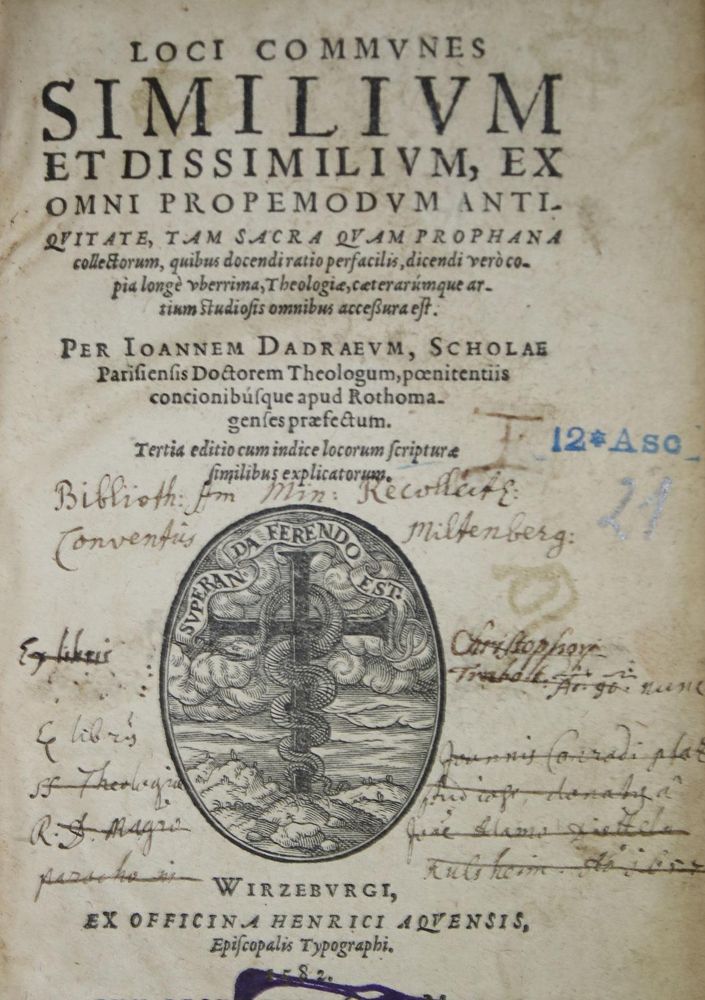 LOCI COMMVNES
SIMILIVM
ET DISSIMILIVM, EX
OMNI PROPEMODVM ANTI-
QVITATE, TAM SACRA QVAM PROPHANA
collectorum, quibus docendi ratio perfacilis, dicendi verò co-
pia longè vberrima, Theologiæ, cæterarúmque ar-
tium studiosis omnibus accessura est.
PER IOANNEM DADRAEVM, SCHOLAE
Parisiensis Doctorem Theologum, pœnitentiis
concionibúsque apud Rothoma-
genses præfectum.
Tertia editio cum indice locorum scripturæ
similibus explicatorum.
I 12*Asc
21
Biblioth: Min: Recollect:
Conventûs Miltenberg:
SVPERAN DA FERENDO EST.
Ex libris Christophori
nunc
Ex libris Joannis Conradi
SS Theologiæ studioso, donatus à
R. D. Magro Adamo
parocho in Kulsheim.
WIRZEBVRGI,
EX OFFICINA HENRICI AQVENSIS,
Episcopalis Typographi.
1582.